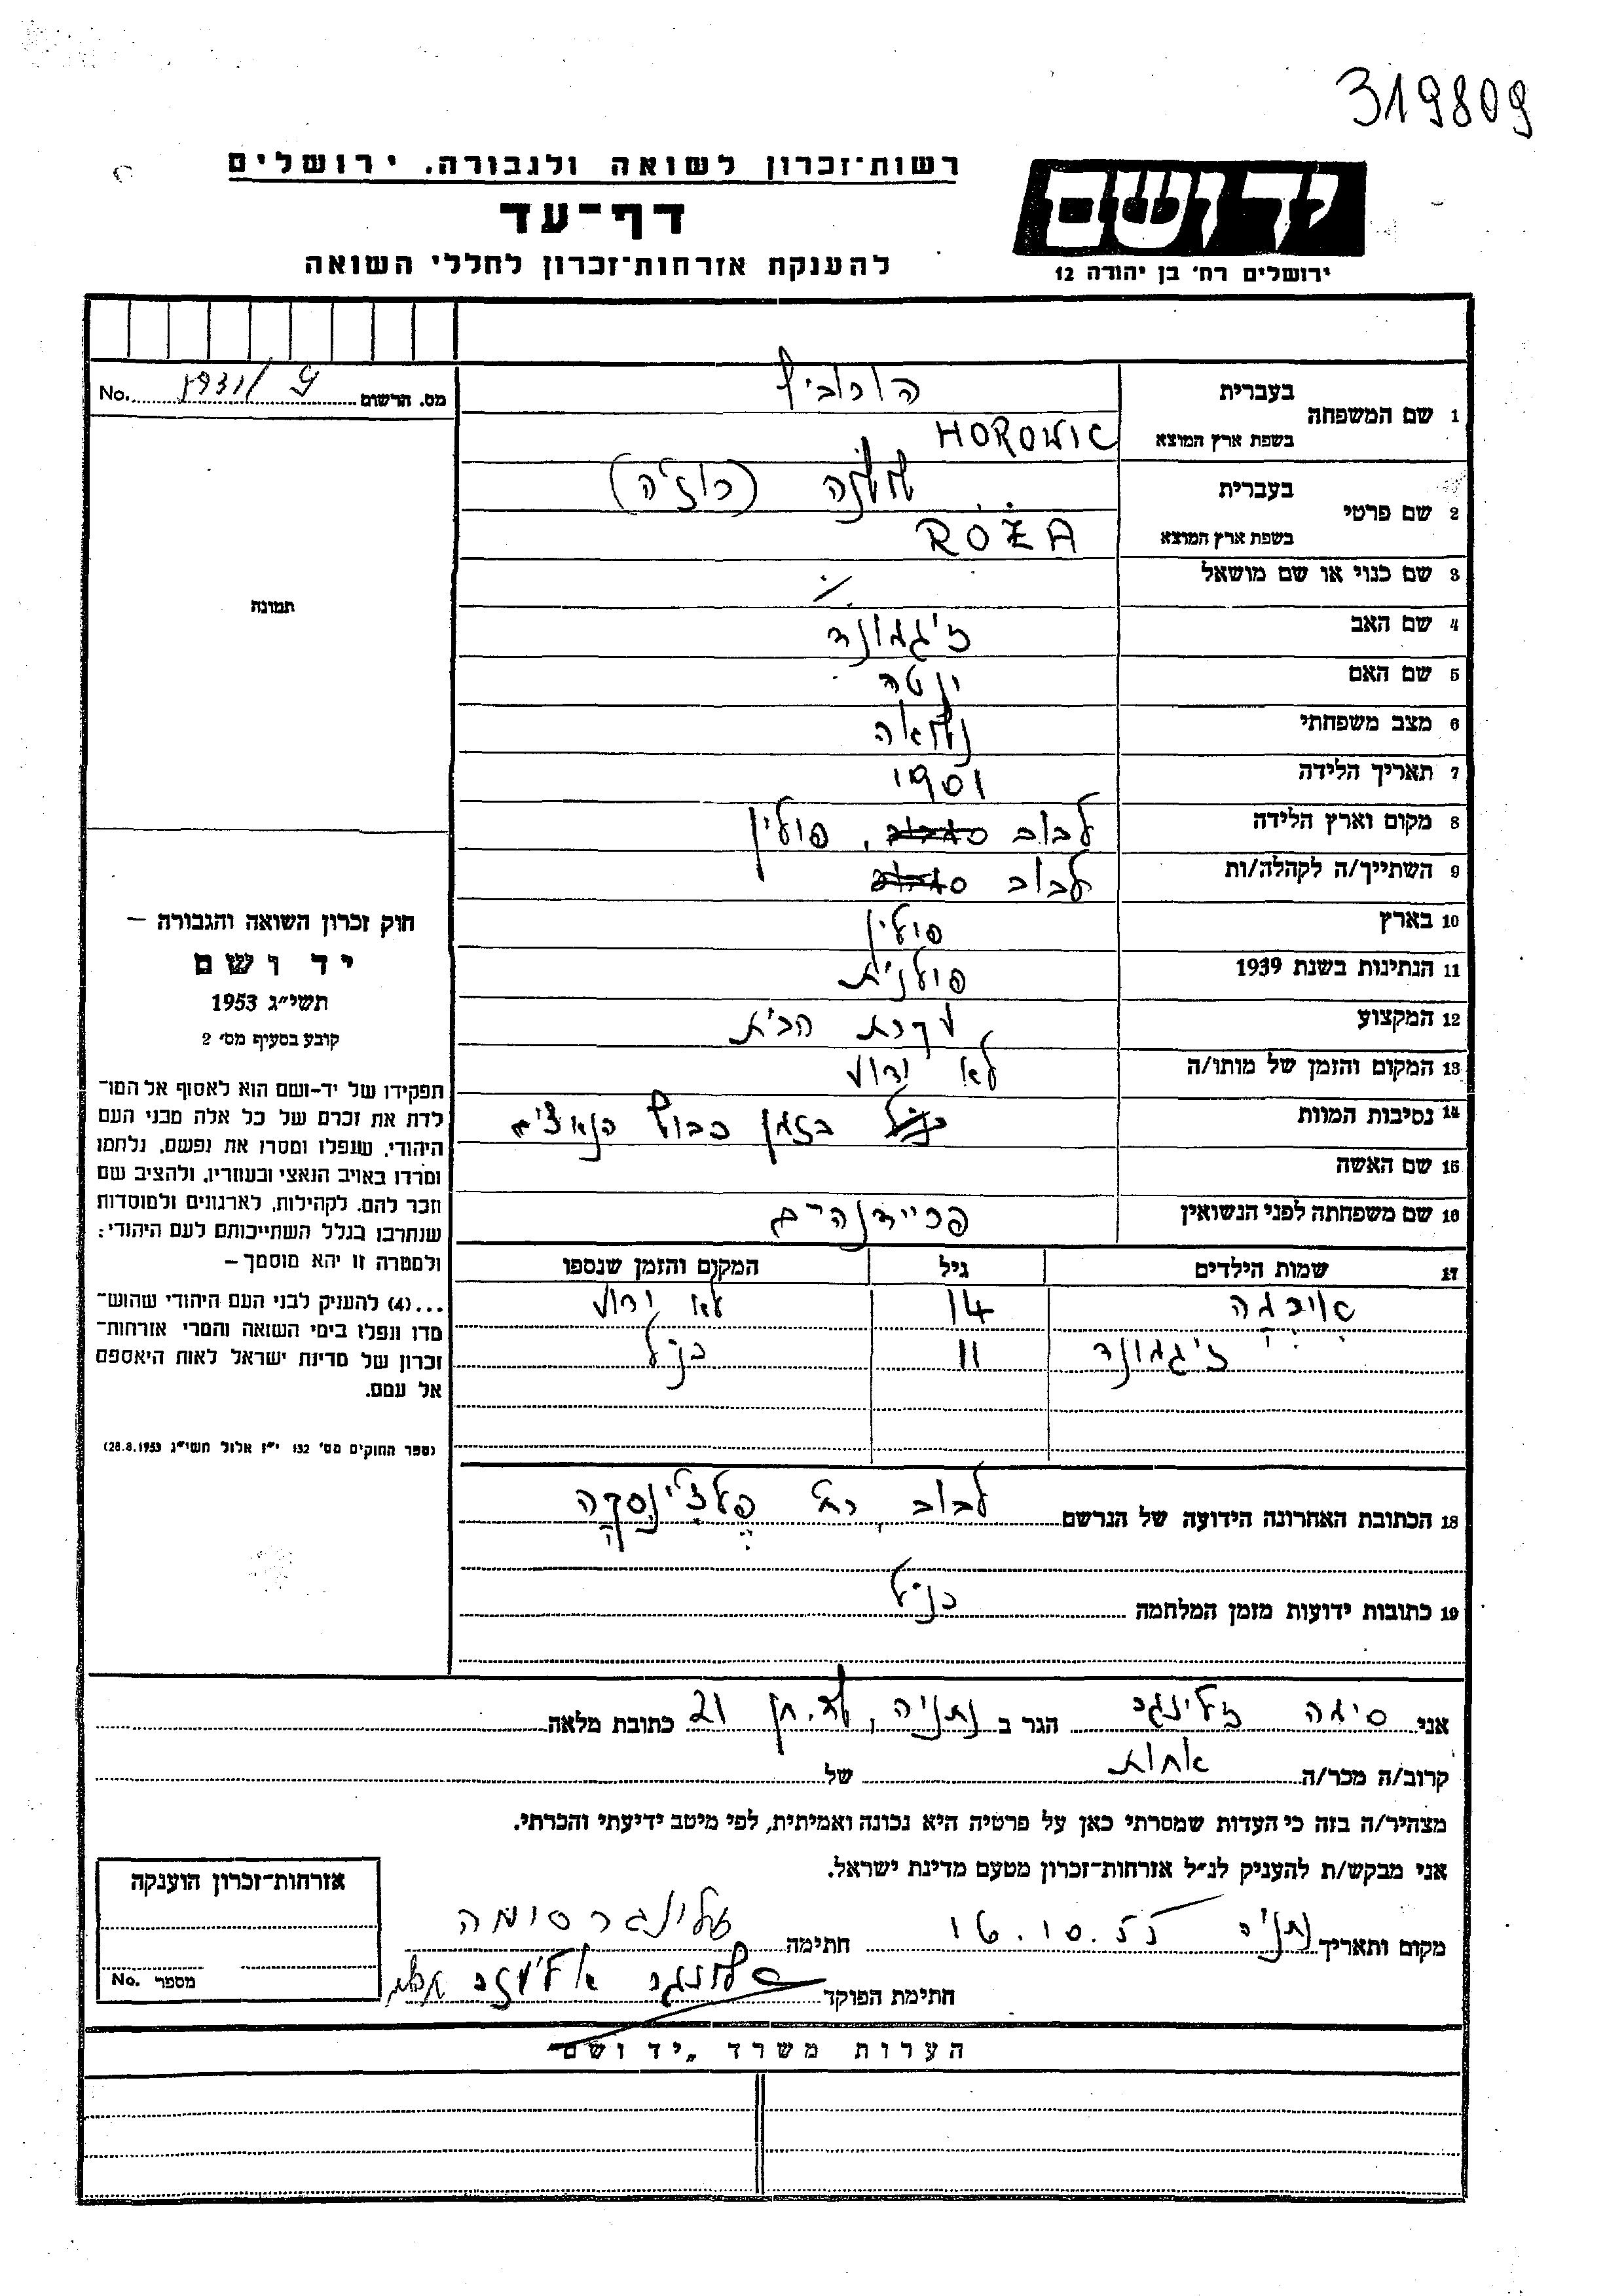 319809
רשות־זכרון לשואה ולגבורה, ירושלים
דף־עד
להענקת אזרחות־זכרון לחללי השואה
יד ושם
ירושלים רח׳ בן יהודה 12
מס. הרשום No.
1 שם המשפחה
בעברית הורוביץ
בשפת ארץ המוצא HOROWIC
2 שם פרטי
בעברית (רוז׳ה)
בשפת ארץ המוצא RÓŻA
3 שם כנוי או שם מושאל ٪
4 שם האב זיגמונד
5 שם האם יטה
6 מצב משפחתי נשואה
7 תאריך הלידה 1901
8 מקום וארץ הלידה לבוב, פולין
9 השתייך/ה לקהלה/ות לבוב
10 בארץ פולין
11 הנתינות בשנת 1939 פולנית
12 המקצוע עקרת הבית
13 המקום והזמן של מותו/ה לא ידוע
14 נסיבות המוות בזמן כבוש הנאצים
15 שם האשה
16 שם משפחתה לפני הנשואין פריידנהיים
17 שמות הילדים גיל המקום והזמן שנספו
14 לא ידוע
זיגמונד 11 כנ״ל
18 הכתובת האחרונה הידועה של הנרשם לבוב, רח׳
19 כתובות ידועות מזמן המלחמה כנ״ל
תמונה
חוק זכרון השואה והגבורה –
יד ושם
תשי״ג 1953
קובע בסעיף מס׳ 2
תפקידו של יד־ושם הוא לאסוף אל המו־
לדת את זכרם של כל אלה מבני העם
היהודי, שנפלו ומסרו את נפשם, נלחמו
ומרדו באויב הנאצי ובעוזריו, ולהציב שם
וזכר להם, לקהילות, לארגונים ולמוסדות
שנחרבו בגלל השתייכותם לעם היהודי:
ולמטרה זו יהא מוסמך –
...(4) להעניק לבני העם היהודי שהוש־
מדו ונפלו בימי השואה והמרי אזרחות־
זכרון של מדינת ישראל לאות היאספם
אל עמם.
(ספר החוקים מס׳ 132 י״ז אלול תשי״ג 28.8.1953)
אני סימה זלינגר הגר ב נתניה, 21 כתובת מלאה
קרוב/ה מכר/ה אחות של
מצהיר/ה בזה כי העדות שמסרתי כאן על פרטיה היא נכונה ואמיתית, לפי מיטב ידיעתי והכרתי.
אני מבקש/ת להעניק לנ״ל אזרחות־זכרון מטעם מדינת ישראל.
מקום ותאריך נתניה 16.10.55 חתימה זלינגר סימה
חתימת הפוקד
אזרחות־זכרון הוענקה
מספר No.
הערות משרד „יד ושם"